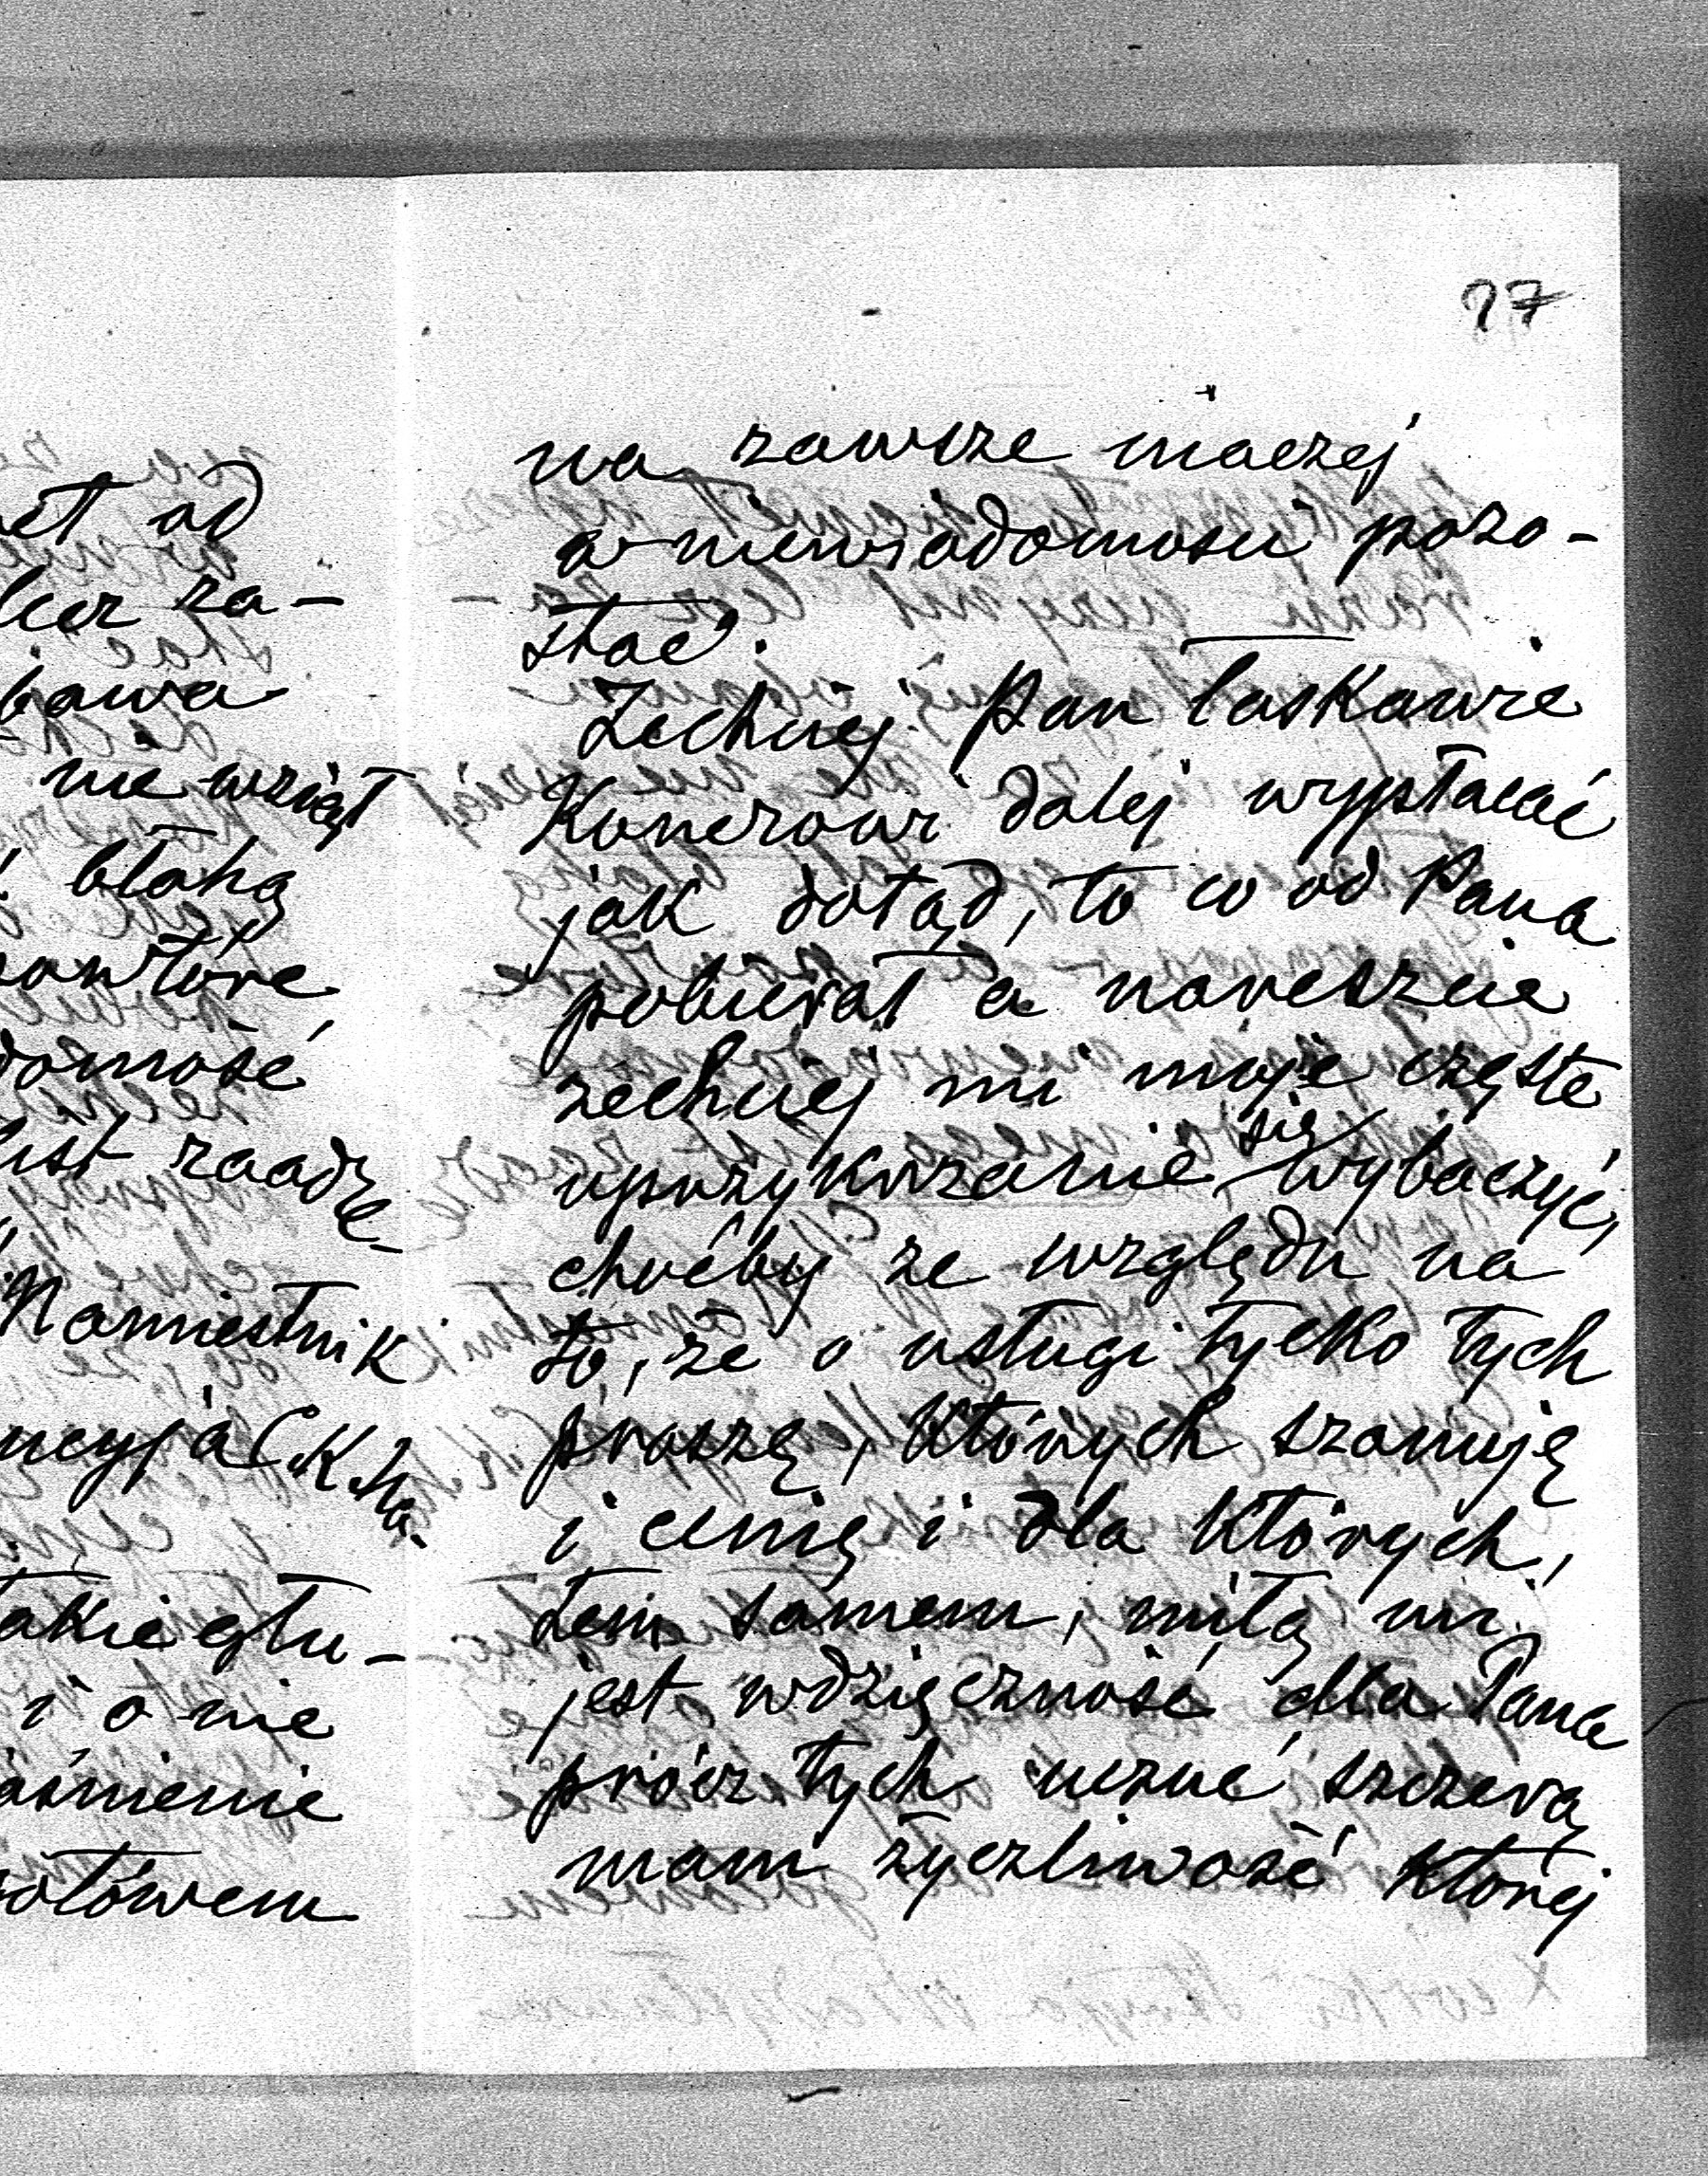 97
na zawsze inaczej
w niewiadomości pozo-
stać.
Zechciej Pan łaskawie
Konczowi dalej wypłacać
jak dotąd, to co od Pana
pobierał a nareszcie
zechciej mi moje częste
uprzykrzanie się wybaczyć,
choćby ze względu na
to, że o usługi tylko tych
proszę, których szanuję
i cenię i dla których,
tem samem, miłą mi
jest wdzięczność dla Pana
prócz tych uczuć szczerą
mam życzliwość której
et od
lecz za-
bawa
nie wziął
błahą
powtóre
domość
list
Namiestnik
ncyja C. K. Na-
takie głu-
i o nie
aśnienie
gotowem